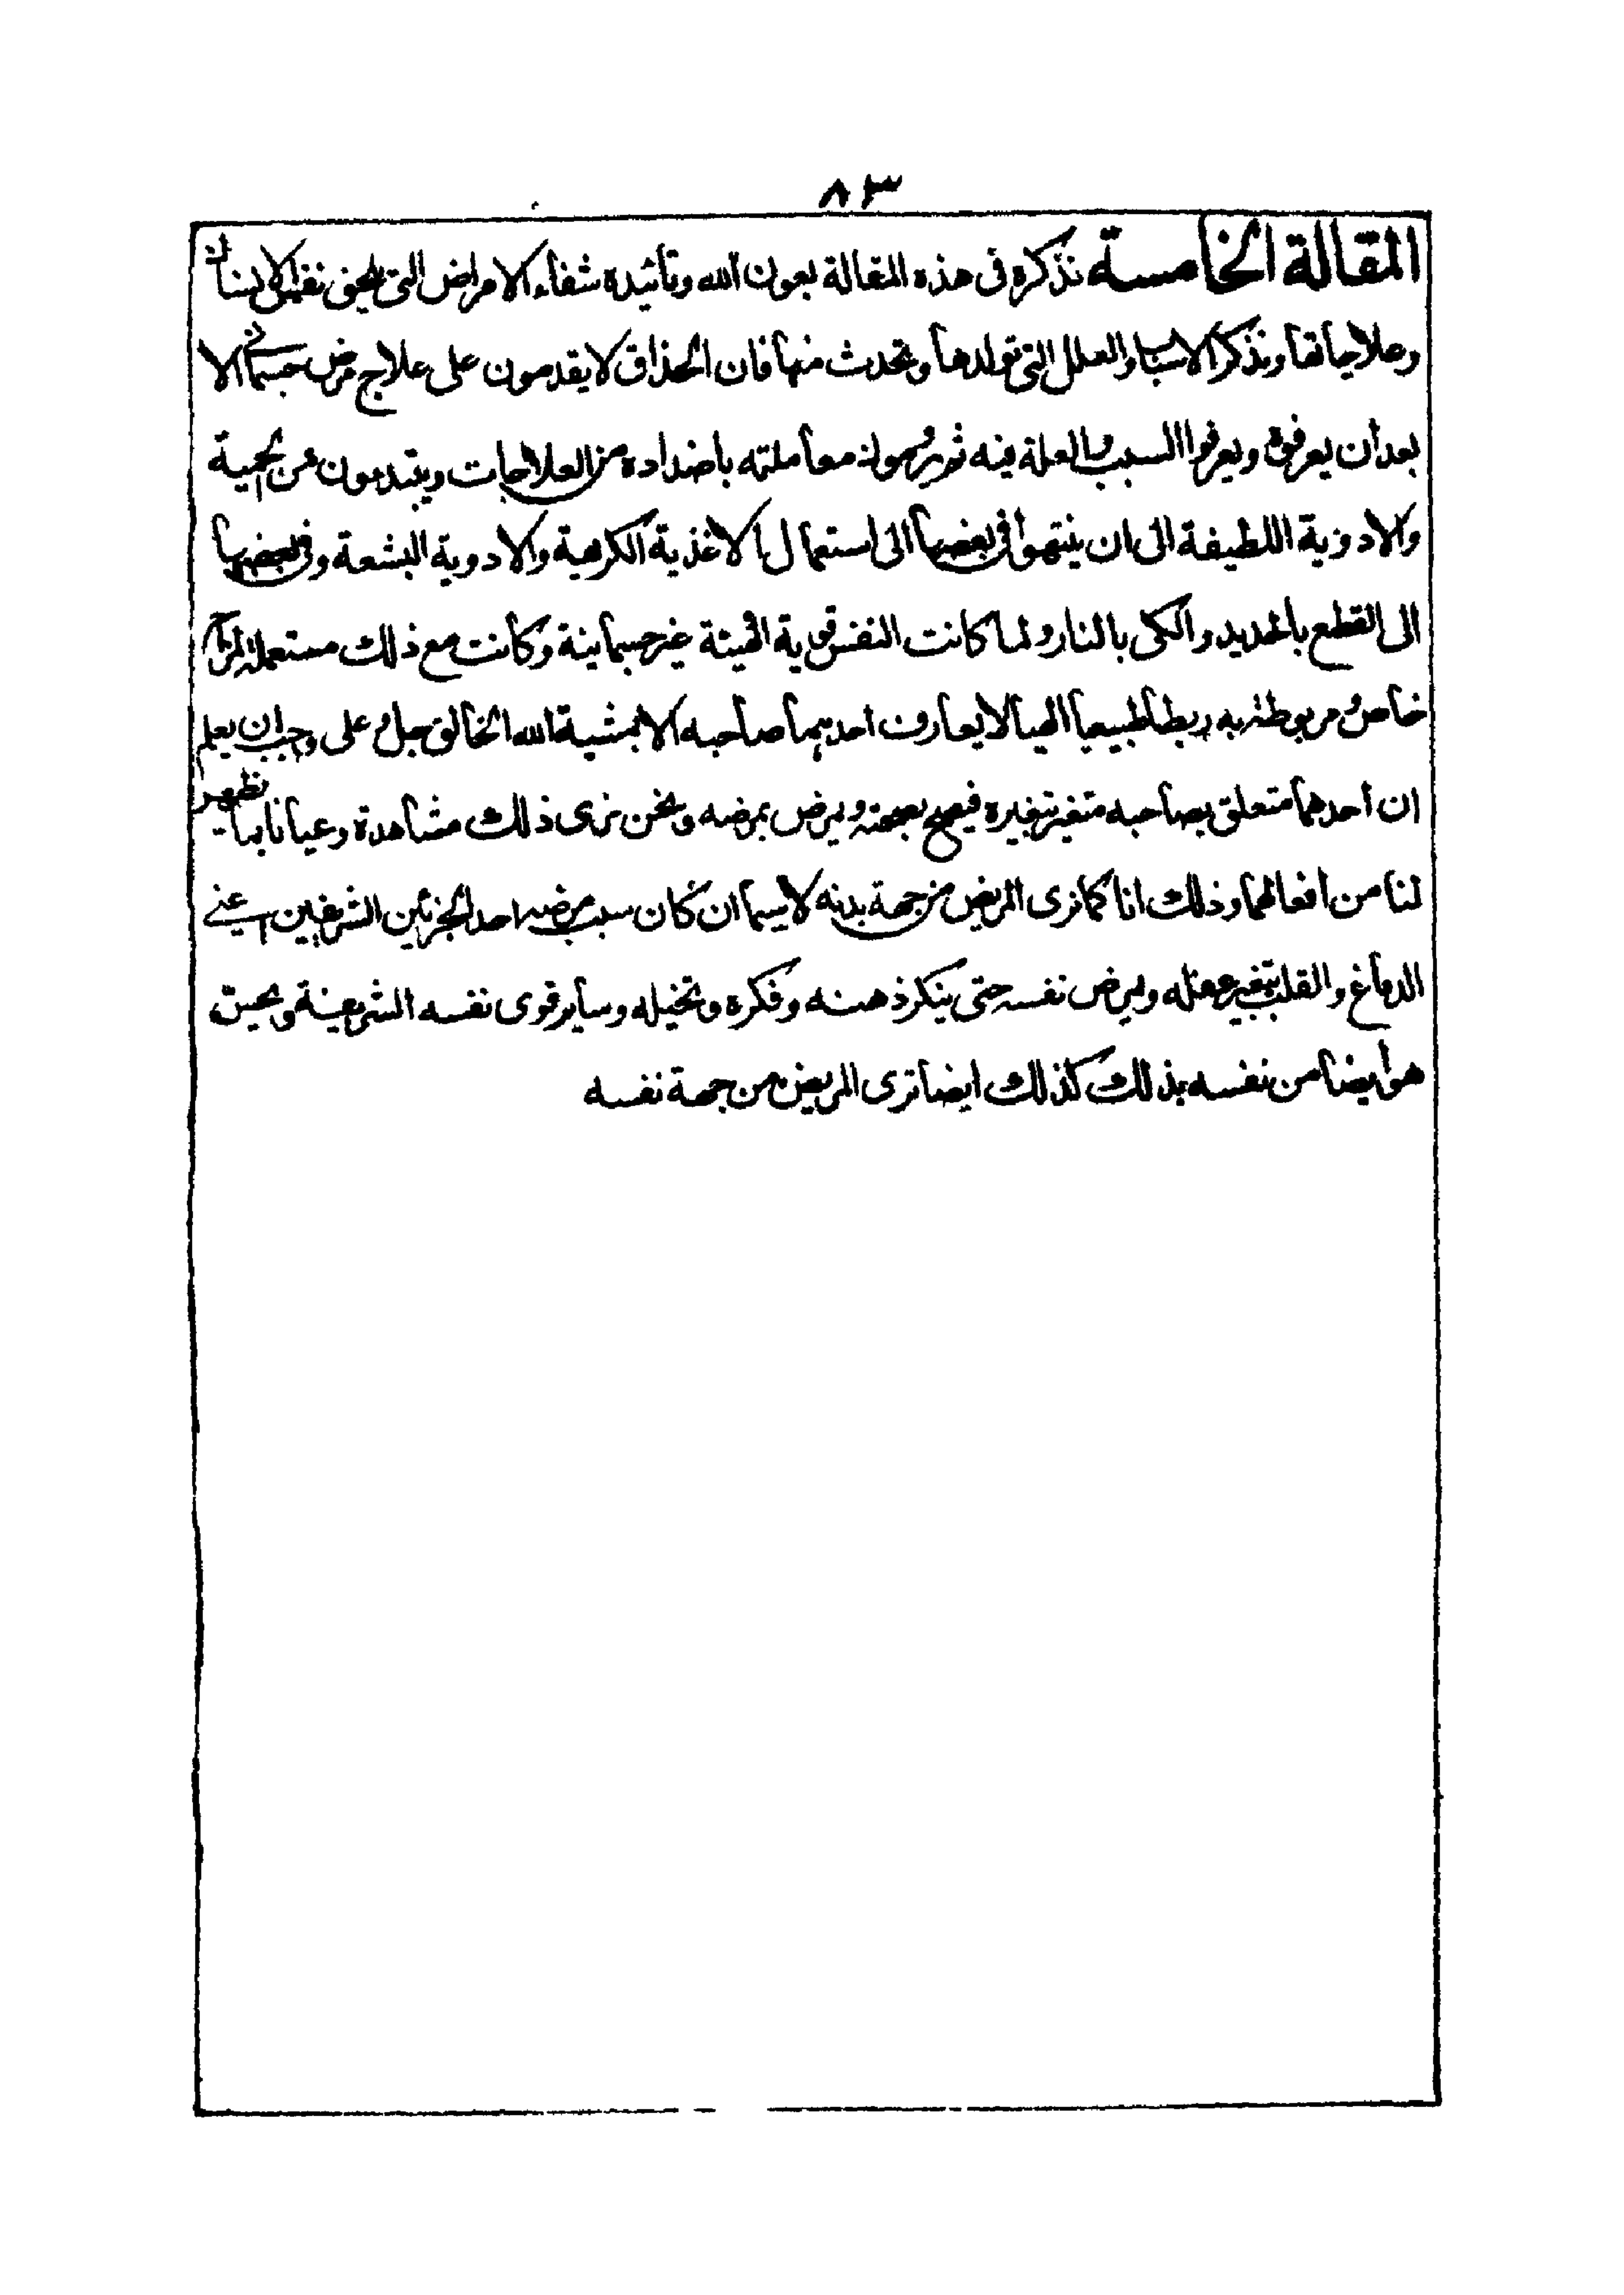 ٨٣
المقالة الخامسة نذكره فى هذه المقالة بعون الله وتأئيده شفاء الامراض التى تلحق نفس الانسان
وعلاجاتها ونذكر الاسباب والعلل التى تولدها وتحدث منها فان الحذاق لا يقدمون على علاج مرض جسمانى الا
بعد أن يعرفوه ويعرفوا السبب والعلة فيه ثم يرمون معاملته باضداده من العلاجات ويبتدءون من الحمية
والادوية اللطيفة الى ان ينتهوا فى بعضها الى استعمال الاغذية الكرهية والادوية البشعة وفى بعضها
الى القطع بالحديد والكى بالنار ولما كانت النفس قوية الهيئة غير جسمانية وكانت مع ذلك مستعملة لمزاج
خاص ومربوطة به ربطا طبيعيا الهيا لا يعارف احدهما صاحبه الا بمشية الله الخالق جل وعلى وجب ان يعلم
ان احدهما متعلق بصاحبه متغير بتغيره فيصح بصحته ويمرض بمرضه ونحن نرى ذلك مشاهدة وعيانا بما يظهر
لنا من افعالهما وذلك انا كما نرى المريض من جهة بدنه لاسيما ان كان سبب مرضه احد الجزئين الشريفين اعنى
الدماغ والقلب يتغير عقله ويمرض نفسه حتى ينكر ذهنه وفكره وتخيله وساير قوى نفسه الشريفة ويحس
هو أيضا من نفسه بذلك كذلك ايضا نرى المريض من جهة نفسه